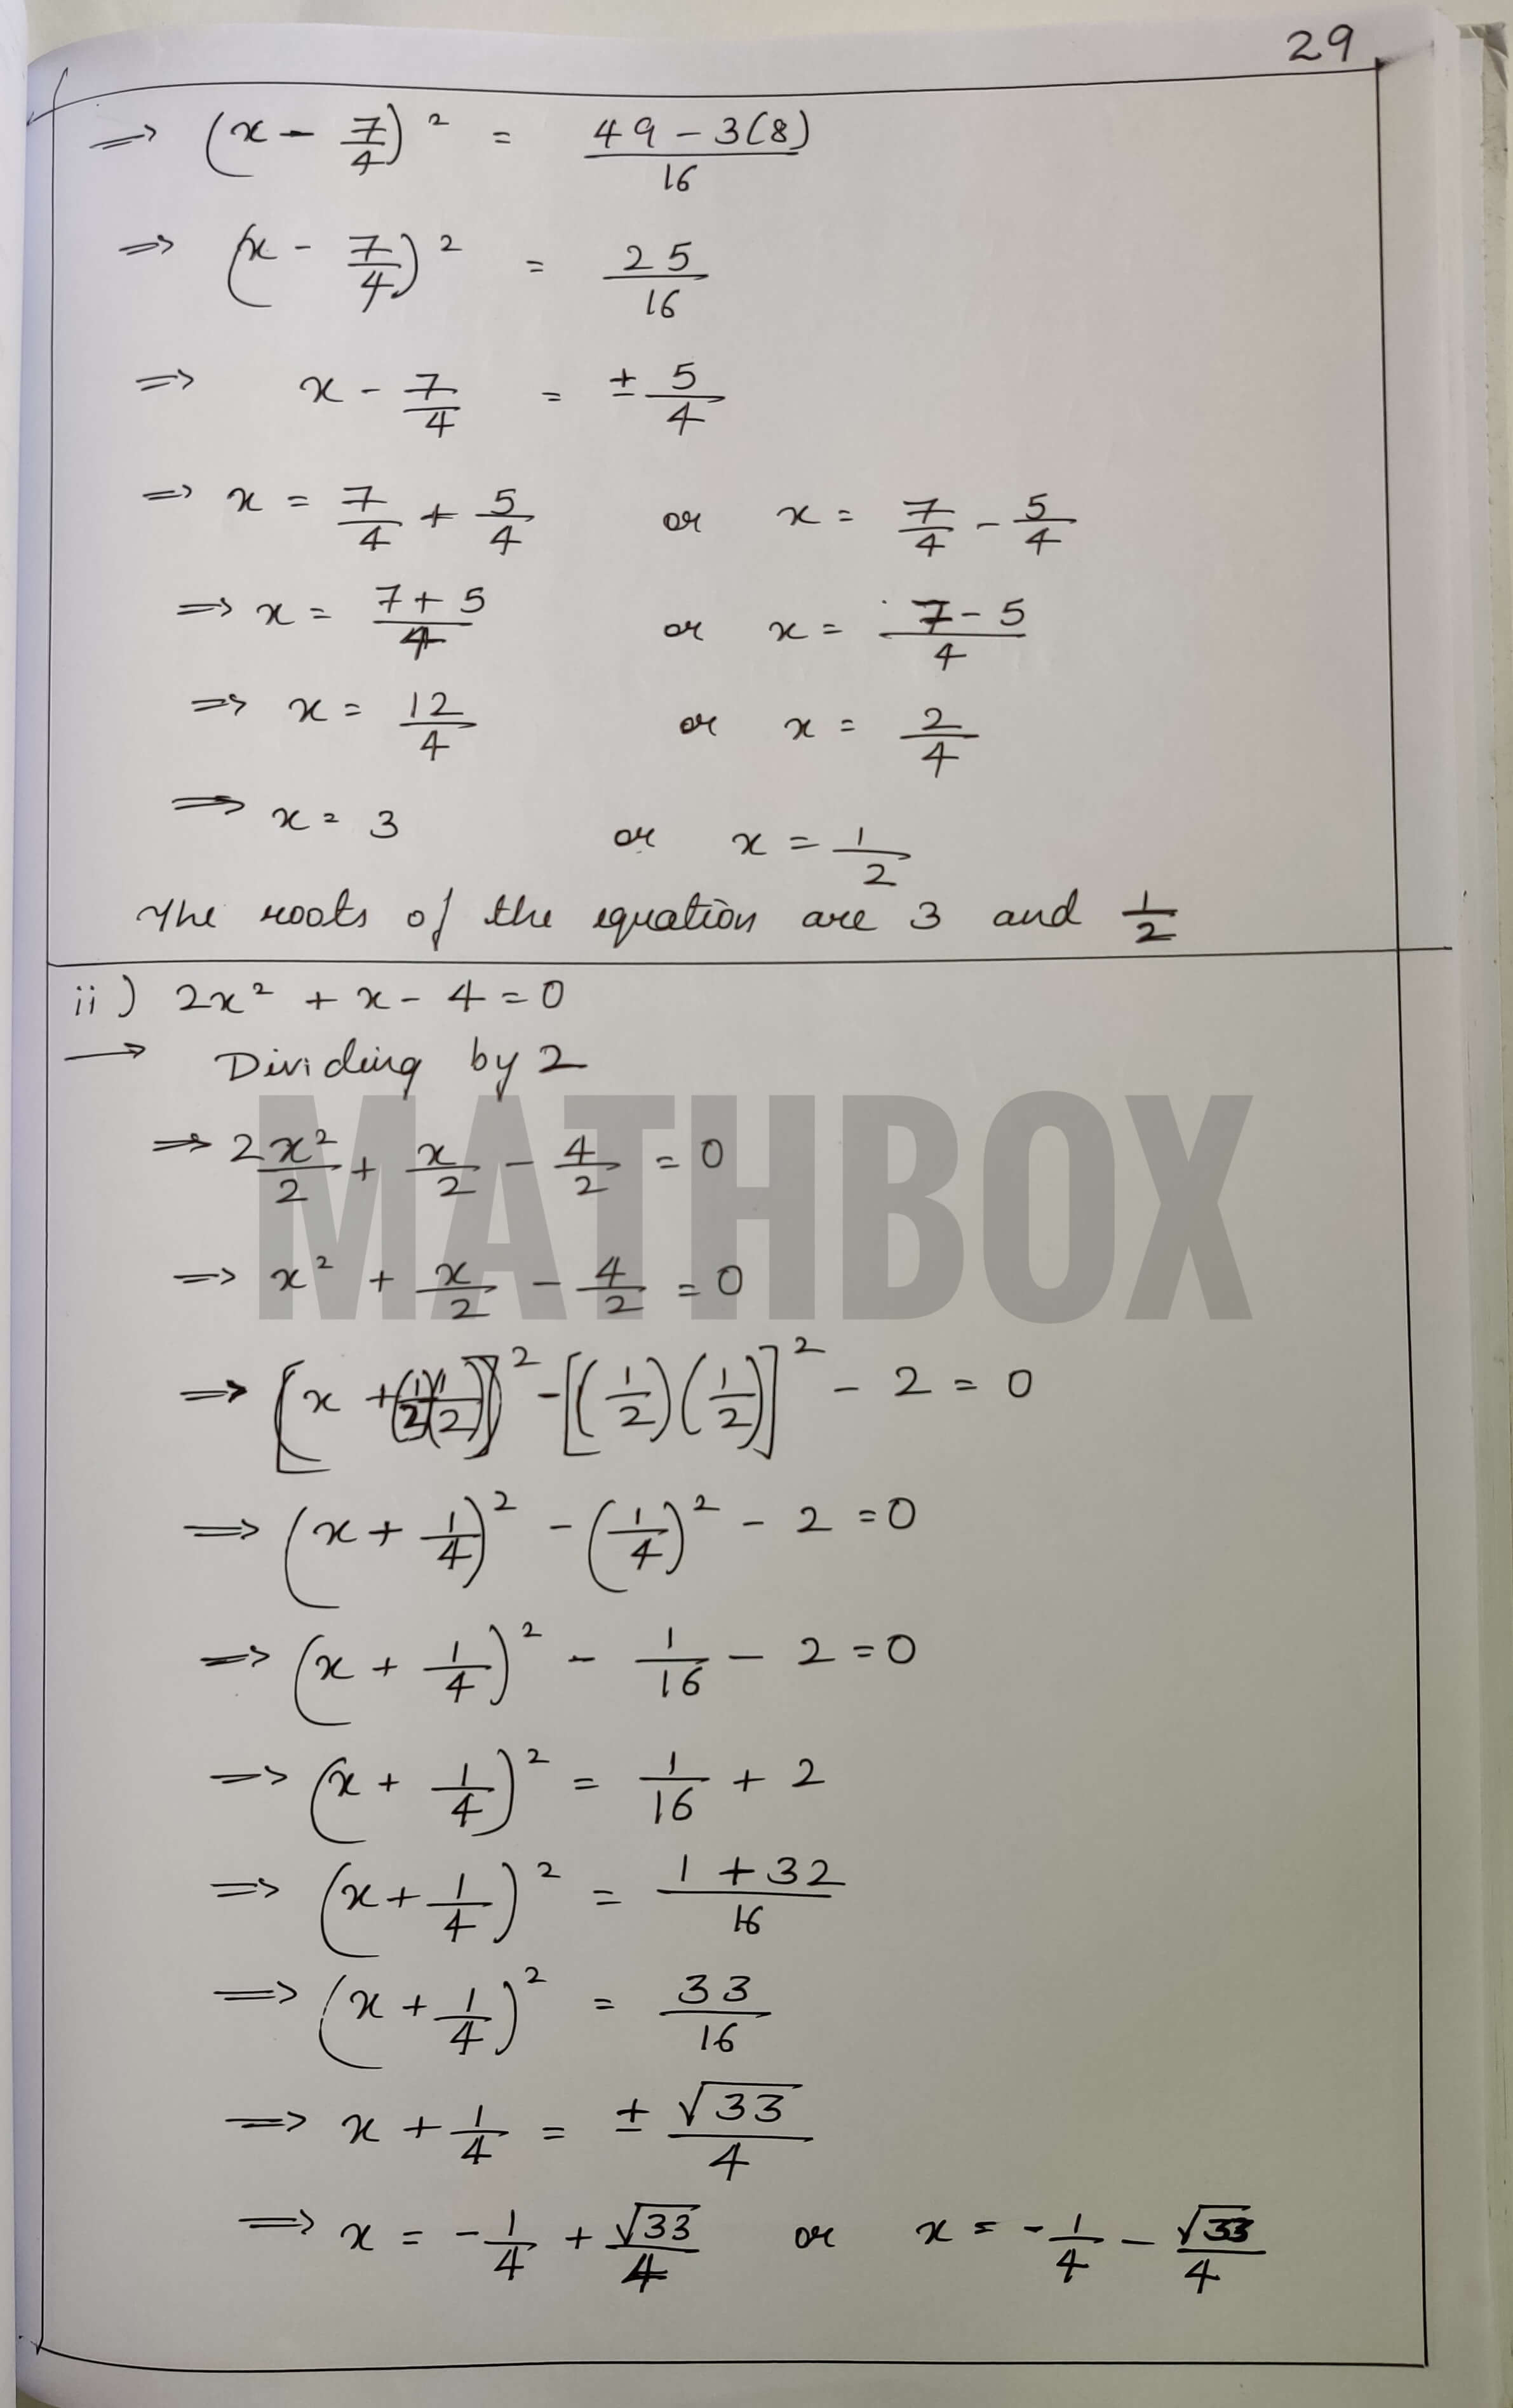 29
⇒ (x - 7/4)² = (49 - 3(8))/16
⇒ (x - 7/4)² = 25/16
⇒ x - 7/4 = ± 5/4
⇒ x = 7/4 + 5/4 or x = 7/4 - 5/4
⇒ x = (7+5)/4 or x = (7-5)/4
⇒ x = 12/4 or x = 2/4
⇒ x = 3 or x = 1/2
The roots of the equation are 3 and 1/2
ii) 2x² + x - 4 = 0
→ Dividing by 2
⇒ 2x²/2 + x/2 - 4/2 = 0
MATHBOX
⇒ x² + x/2 - 4/2 = 0
⇒ [x + (1/2)(1/2)]² - [(1/2)(1/2)]² - 2 = 0
⇒ (x + 1/4)² - (1/4)² - 2 = 0
⇒ (x + 1/4)² - 1/16 - 2 = 0
⇒ (x + 1/4)² = 1/16 + 2
⇒ (x + 1/4)² = (1 + 32)/16
⇒ (x + 1/4)² = 33/16
⇒ x + 1/4 = ± √33/4
⇒ x = -1/4 + √33/4 or x = -1/4 - √33/4